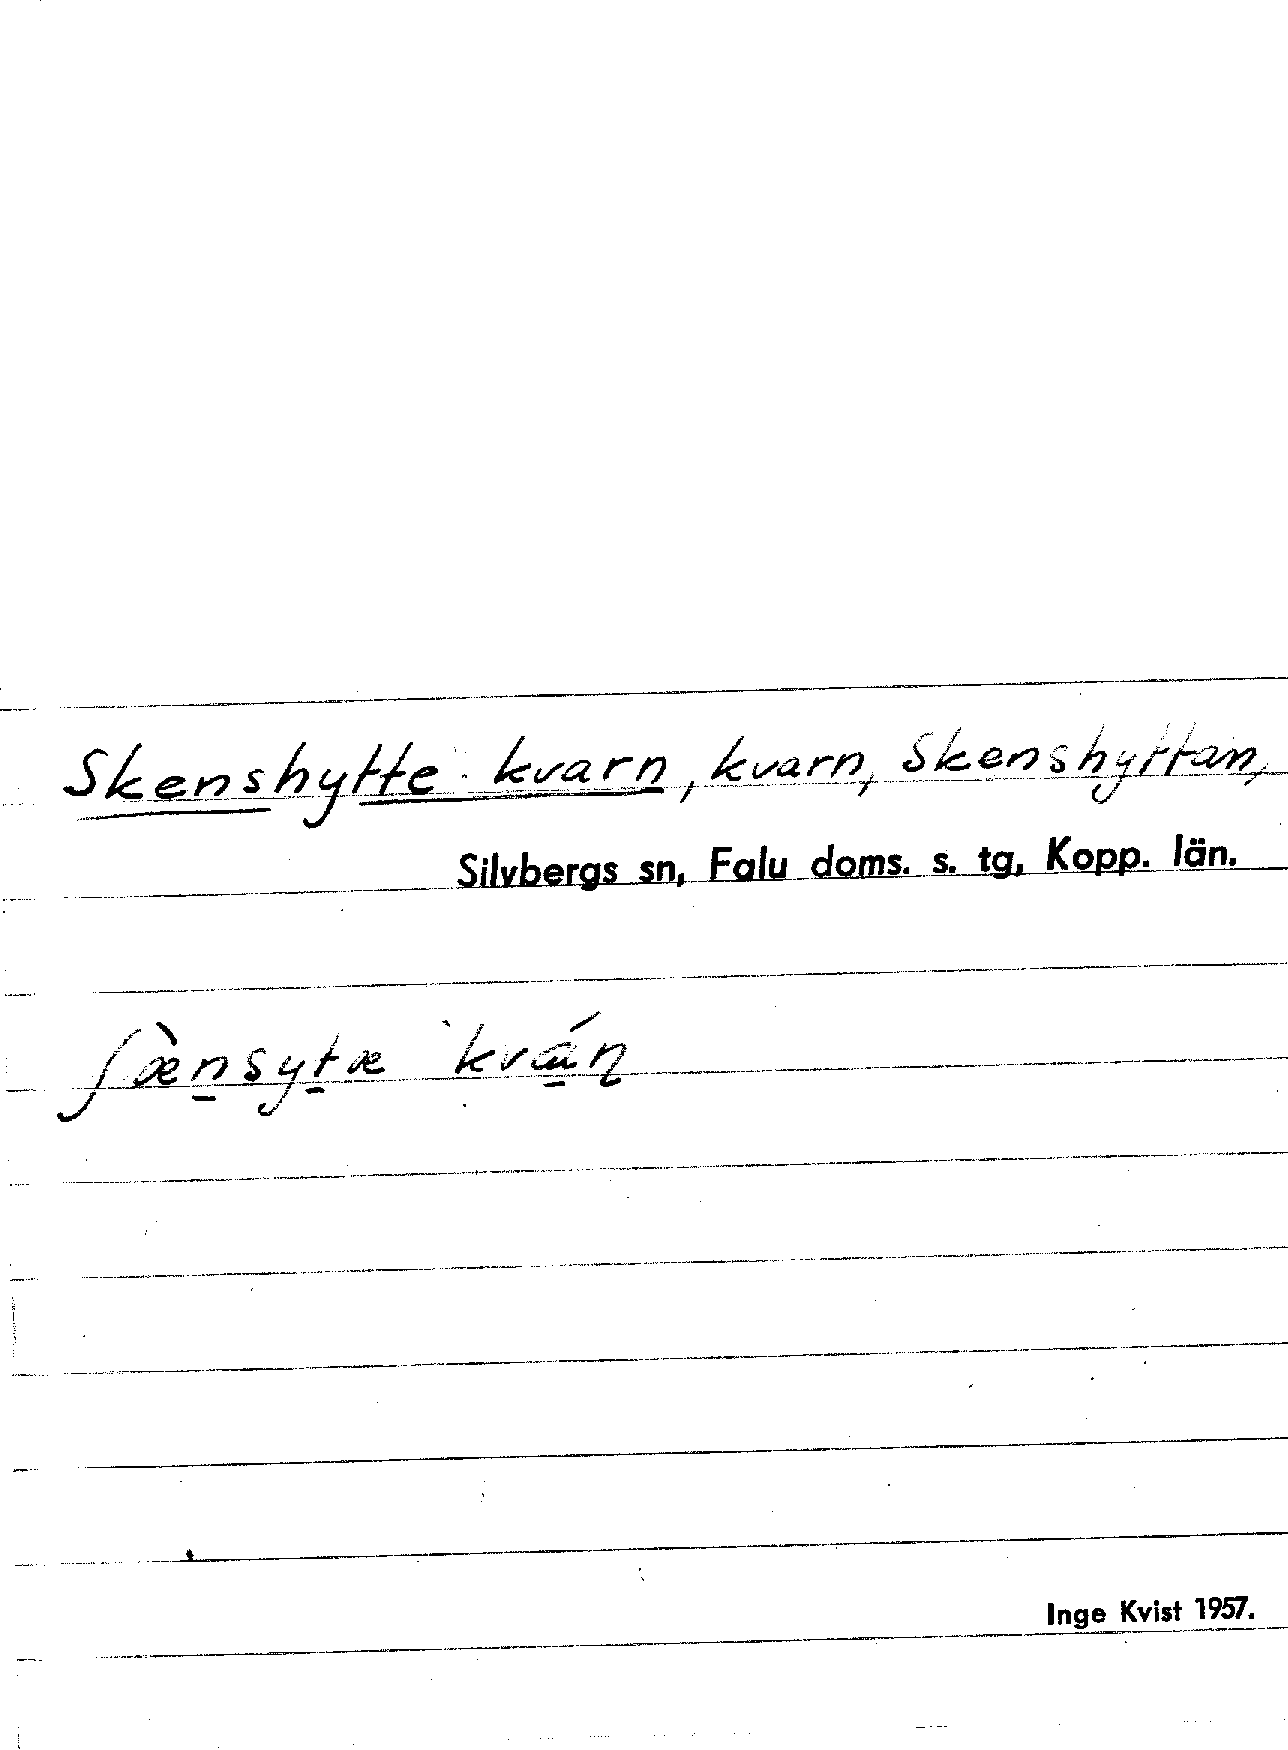 Skenshytte kvarn, kvarn, Skenshyttan,
Silvbergs sn, Falu doms. s. tg, Kopp. län.
ʃæ̀n̲syt̲æ kvá̲ɳ
Inge Kvist 1957.